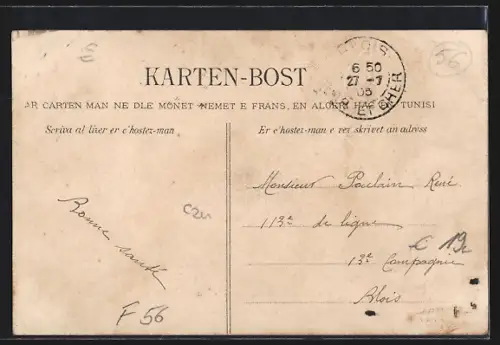 56
BLOIS
6 50
27 -7
05
LOIR-ET-CHER
KARTEN-BOST
AR CARTEN MAN NE DLE MONET NEMET E FRANS, EN ALGERI HAG EN TUNISI
Scriva al lizer er c'hostez-man
Er c'hostez-man e vez skrivet an adress
Bonne santé
Monsieur Poulain René
113e de ligne
13e Compagnie
Blois
F 56